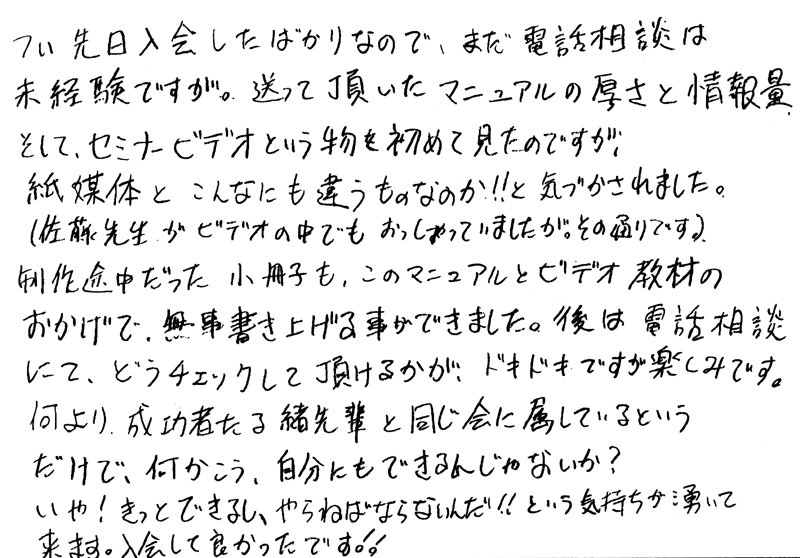 つい先日入会したばかりなので、まだ電話相談は
未経験ですが。送って頂いたマニュアルの厚さと情報量
そして、セミナービデオという物を初めて見たのですが、
紙媒体とこんなにも違うものなのか!!と気づかされました。
(佐藤先生がビデオの中でもおっしゃっていましたが。その通りです)
制作途中だった小冊子も、このマニュアルとビデオ教材の
おかげで、無事書き上げる事ができました。後は電話相談
にて、どうチェックして頂けるかが、ドキドキですが楽しみです。
何より、成功者たる緒先輩と同じ会に属しているという
だけで、何かこう、自分にもできるんじゃないか?
いや!きっとできるし、やらねばならないんだ!!という気持ちが湧いて
来ます。入会して良かったです!!